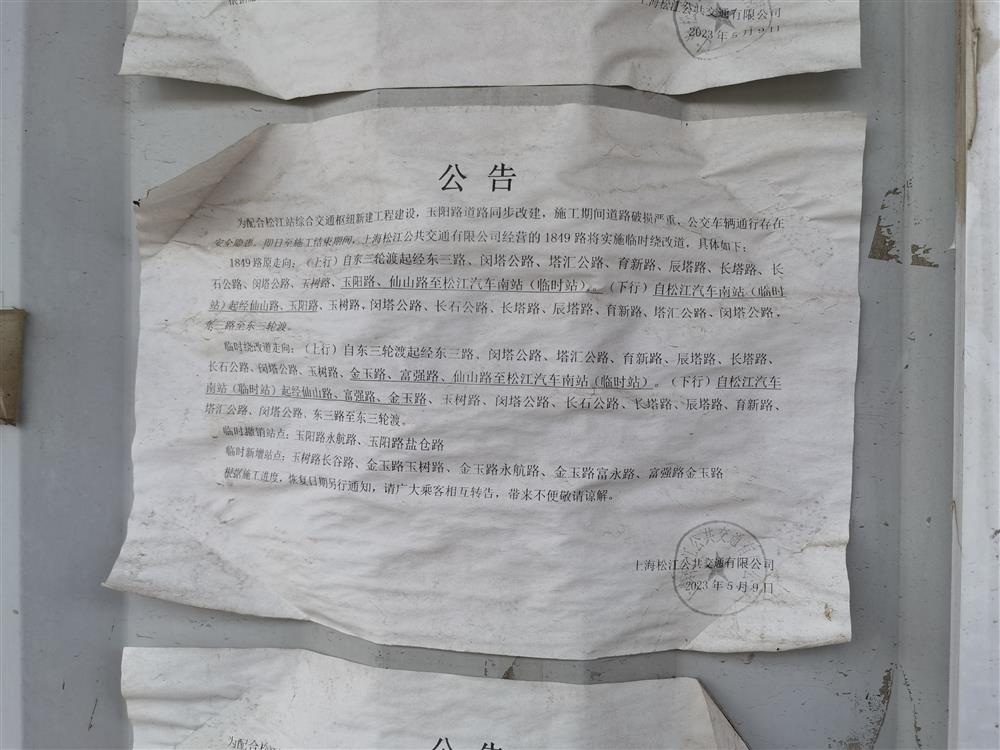 上海松江公共交通有限公司
2023年5月9日
公告
为配合松江站综合交通枢纽新建工程建设，玉阳路道路同步改建，施工期间道路破损严重、公交车辆通行存在
安全隐患，即日至施工结束期间，上海松江公共交通有限公司经营的1849路将实施临时绕改道，具体如下：
1849路原走向：（上行）自东三轮渡起经东三路、闵塔公路、塔汇公路、育新路、辰塔路、长塔路、长
石公路、闵塔公路、玉树路、玉阳路、仙山路至松江汽车南站（临时站）。（下行）自松江汽车南站（临时
站）起经仙山路、玉阳路、玉树路、闵塔公路、长石公路、长塔路、辰塔路、育新路、塔汇公路、闵塔公路、
东三路至东三轮渡。
临时绕改道走向：（上行）自东三轮渡起经东三路、闵塔公路、塔汇公路、育新路、辰塔路、长塔路、
长石公路、闵塔公路、玉树路、金玉路、富强路、仙山路至松江汽车南站（临时站）。（下行）自松江汽车
南站（临时站）起经仙山路、富强路、金玉路、玉树路、闵塔公路、长石公路、长塔路、辰塔路、育新路、
塔汇公路、闵塔公路、东三路至东三轮渡。
临时撤销站点：玉阳路永航路、玉阳路盐仓路
临时新增站点：玉树路长谷路、金玉路玉树路、金玉路永航路、金玉路富永路、富强路金玉路
根据施工进度，恢复日期另行通知，请广大乘客相互转告，带来不便敬请谅解。
上海松江公共交通有限公司
2023年5月9日
公告
为配合松